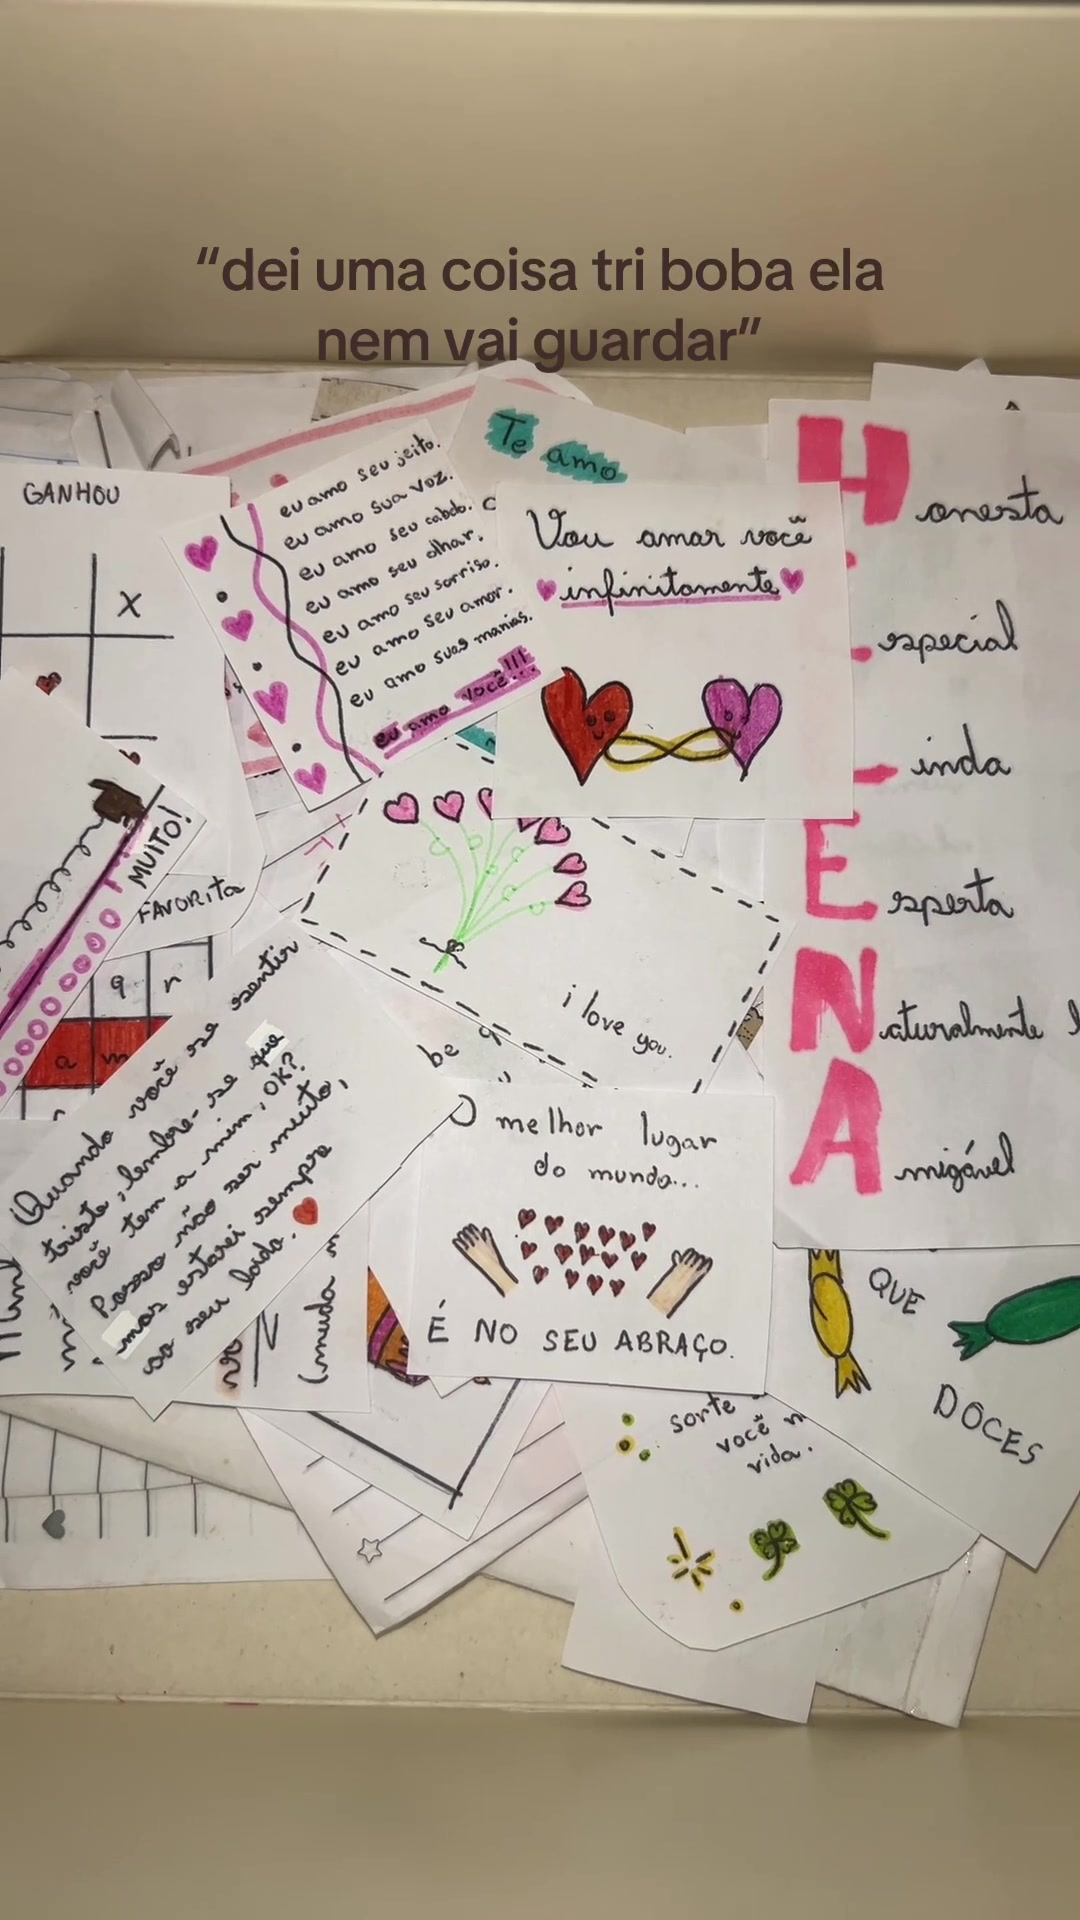 “dei uma coisa tri boba ela
nem vai guardar”
GANHOU
X
eu amo seu jeito.
eu amo sua voz.
eu amo seu cabelo.
eu amo seu olhar.
eu amo seu sorriso.
eu amo seu amor.
eu amo suas manias.
eu amo você!!!
Te amo
Vou amar você
infinitamente
H onesta
especial
inda
E sperta
N aturalmente l
A migável
MUITO!
FAVORITA
q n
a m
i love you.
be q
Quando você se sentir
triste, lembre-se que
você tem a mim, OK?
Posso não ser muito,
mas estarei sempre
ao seu lado.
(muda
O melhor lugar
do mundo...
É NO SEU ABRAÇO.
QUE
DOCES
sorte
você n
vida.